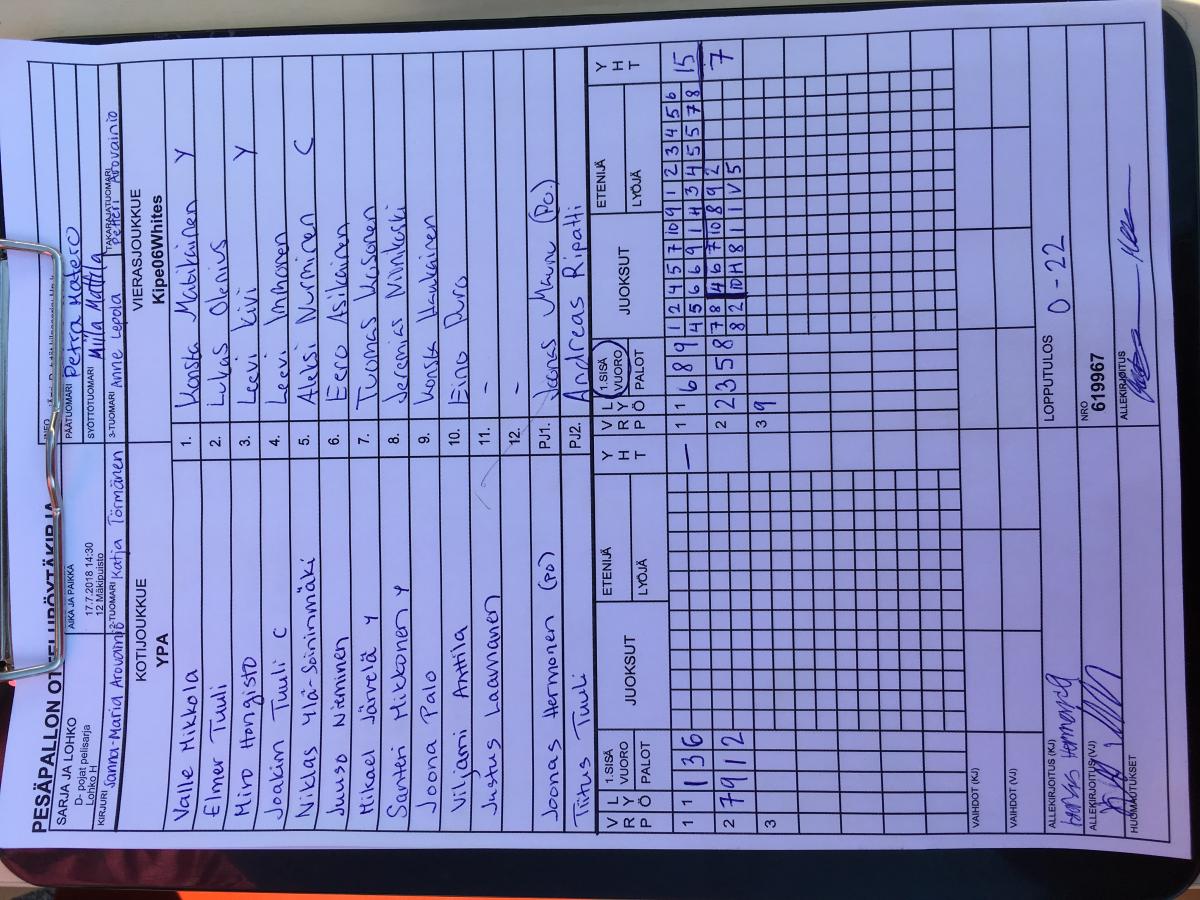 PESÄPALLON OTTELUPÖYTÄKIRJA
SARJA JA LOHKO
D- pojat pelisarja
Lohko H
AIKA JA PAIKKA
17.7.2018 14:30
12 Mäkipuisto
PÄÄTUOMARI Petra Matero
SYÖTTÖTUOMARI Milla Mattila
KIRJURI Sanna-Maria Arovainio
2-TUOMARI Katja Törmänen
3-TUOMARI Anne Lepola
TAKARAJATUOMARI Petteri Arovainio
KOTIJOUKKUE VIERASJOUKKUE
YPA Kipe06Whites
Valle Mikkola 1. Konsta Matikainen Y
Elmer Tuuli 2. Lukas Olenius
Miro Hongisto 3. Leevi Kivi Y
Joakin Tuuli C 4. Leevi Immonen
Niklas Ylä-Soininmäki 5. Aleksi Nurminen C
Juuso Nieminen 6. Eero Asikainen
Mikael Järvelä Y 7. Tuomas
Santeri Mikkonen Y 8. Jeremias
Joona Palo 9. Konsta Haukkainen
Viljami Anttila 10. Eino Puro
Justus Laamanen 11. -
12. -
Joonas Hermonen (po) PJ1. Joonas (po.)
Tiitus Tuuli PJ2. Andreas Ripatti
V R 1.SISÄ VUORO JUOKSUT ETENIJÄ Y H T V R 1.SISÄ VUORO JUOKSUT ETENIJÄ Y H T
L Y Ö PALOT LYÖJÄ L Y Ö PALOT LYÖJÄ
1 1 1 3 6 — 1 1 6 8 9 1 2 4 5 7 10 9 1 2 3 4 5 6 15
4 5 6 6 9 1 4 3 4 5 5 7 8
2 7 9 1 2 2 2 3 5 8 7 8 4 6 7 10 8 9 2 7
8 2 10 4 8 1 1 V 5
3 3 9
VAIHDOT (KJ)
VAIHDOT (VJ)
ALLEKIRJOITUS (KJ) LOPPUTULOS 0 - 22
ALLEKIRJOITUS (VJ) NRO 619967
HUOMAUTUKSET ALLEKIRJOITUS